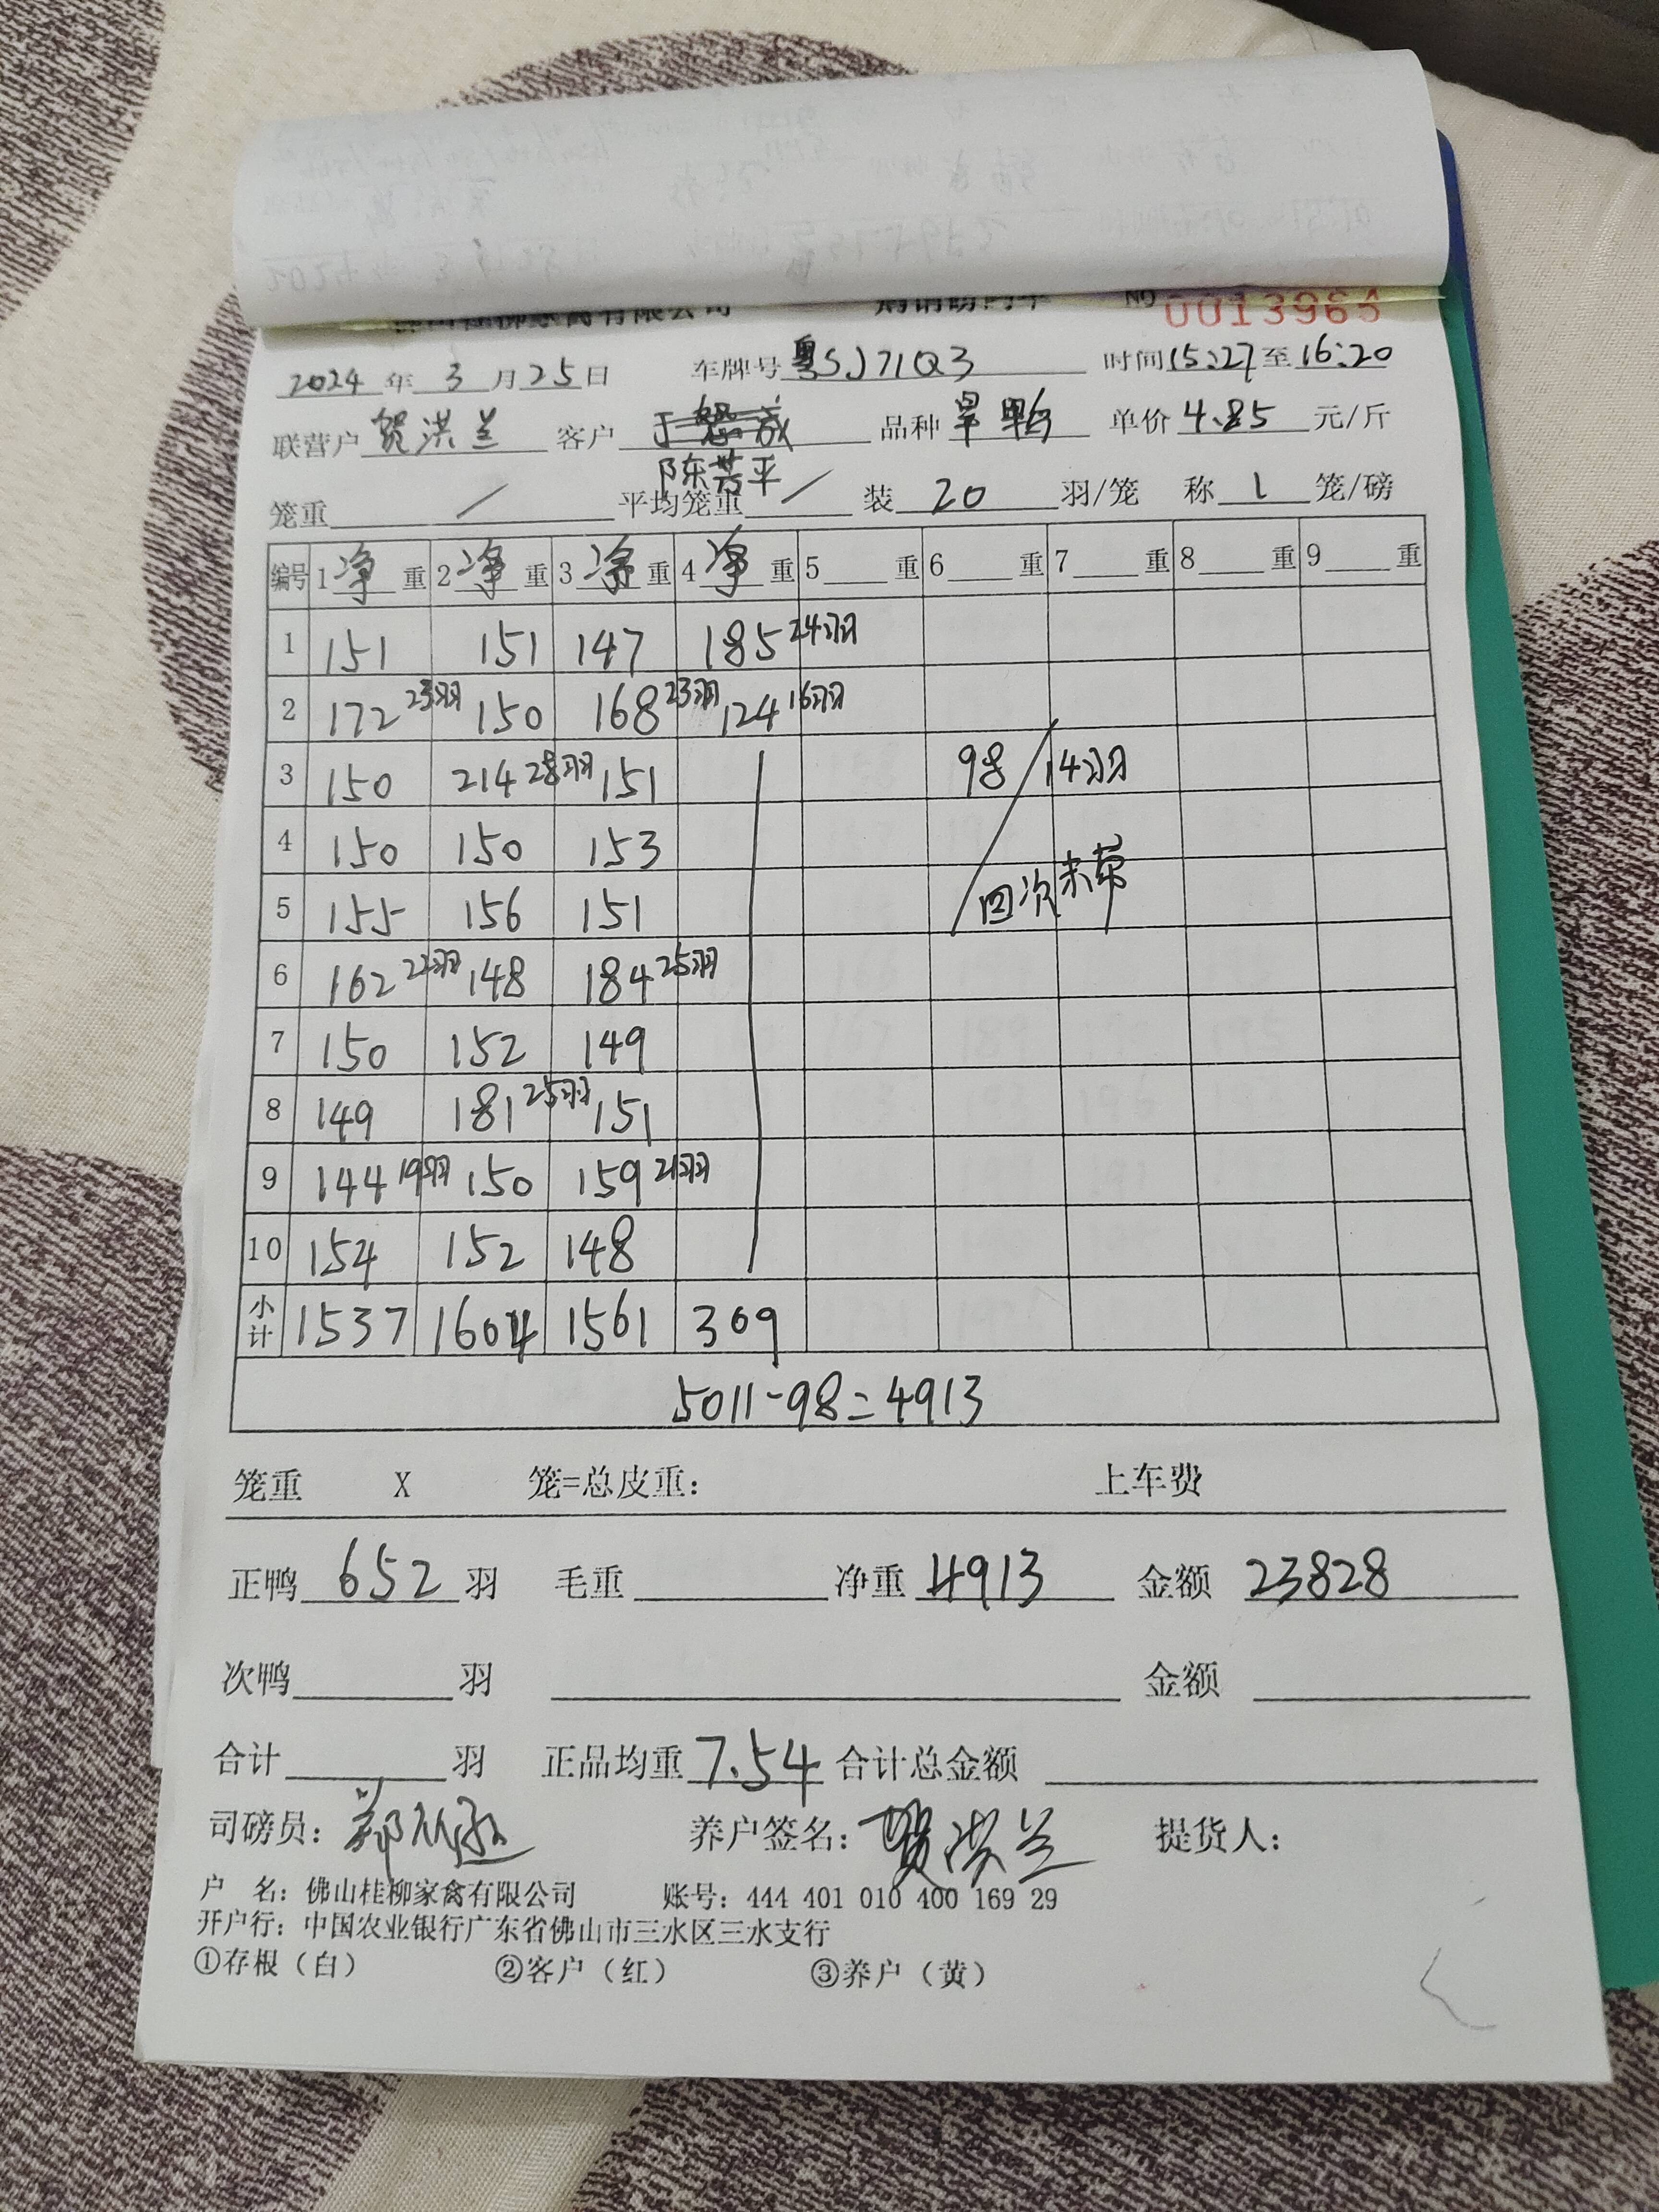 佛山桂柳家禽有限公司 购销磅码单 NO 0013965
2024 年 3 月 25 日 车牌号 粤SJ71Q3 时间 15:27 至 16:20
联营户 贺洪兰 客户 品种 旱鸭 单价 4.85 元/斤
陈芳平
笼重 / 平均笼重 / 装 20 羽/笼 称 1 笼/磅
编号 1 净 重 2 净 重 3 净 重 4 净 重 5 重 6 重 7 重 8 重 9 重
1 151 151 147 185 24羽
2 172 23羽 150 168 23羽 124 16羽
3 150 214 28羽 151 98 / 14羽
4 150 150 153
5 155 156 151 四次未带
6 162 22羽 148 184 25羽
7 150 152 149
8 149 181 25羽 151
9 144 19羽 150 159 21羽
10 154 152 148
小计 1537 1604 1561 309
5011-98=4913
笼重 X 笼=总皮重: 上车费
正鸭 652 羽 毛重 净重 4913 金额 23828
次鸭 羽 金额
合计 羽 正品均重 7.54 合计总金额
司磅员: 养户签名: 贺洪兰 提货人:
户 名: 佛山桂柳家禽有限公司 账号: 444 401 010 400 169 29
开户行: 中国农业银行广东省佛山市三水区三水支行
①存根（白） ②客户（红） ③养户（黄）